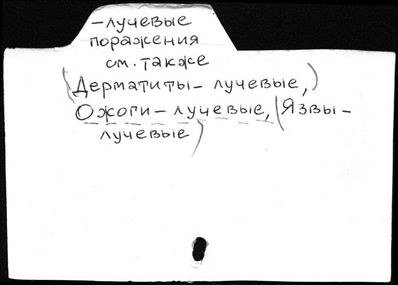 -лучевые
поражения
см. также
(Дерматиты-лучевые,)
Ожоги-лучевые, (Язвы-
лучевые)